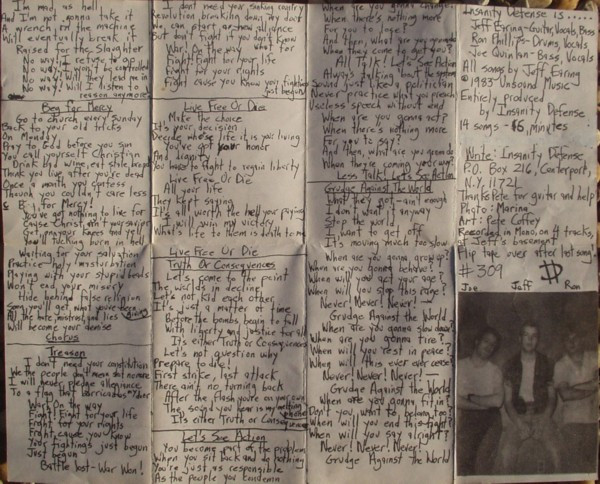 I'm mad, as hell
And I'm not gonna take it
A wrench for the machine
Will eventually break it
Raised for the Slaughter
No way! I refuse to go
No way! I won't be controlled
No way! Will they lead me in
No way! Will I listen to
reason anymore
Beg for Mercy
Go to church every Sunday
Back to your old tricks
On Monday
Pray to God before you sin
You call yourself Christian
Drink his wine, eat his
Think you live after you're dead
Once a month you confess
Though you couldn't care less
Beg for Mercy!
You've got nothing to live for
Cause Christ ain't your savior
Get on your knees and yell
You'll burn in hell
Waiting for your salvation
Practicing masturbation
Playing with your stupid beads
Won't end your misery
Hide behind false religion
Soon you'll get what you're
All the hate, mistrust, and lies
Will become your demise
Chorus
Treason
I don't need your constitution
We the people don't mean nothin no more
I will never pledge allegiance
To a flag that
War's on the way
Fight! Fight for your life
Fight for your rights
Fight, cause you know
Your fightings just begun
Just begun
Battle lost - War Won!
I don't need your sinking country
Revolution breaking down my door
Who can start a new alliance
But don't fight if you don't know
War! On the way what for
Fight! Fight for your life
Fight for your rights
Fight cause you know your fightings
just begun
Live Free Or Die
Make the choice
It's your decision
Decide whose life it is you're living
You've got your honor
And dignity
You have to fight to regain liberty
Live Free Or Die
All your life
They kept saying
It's all worth the hell your paying
I will win my victory
What's life to them is death to me
Live Free Or Die
Truth Or Consequences
Let's come to the point
The world's in decision
Let's not kid each other
It's just a matter of time
Before the bombs begin to fall
With liberty and justice for all
It's either Truth or Consequences
Let's not question why
Prepare to die!
First strike, last attack
There ain't no turning back
After the flash you're on your own
The sound you hear is my
It's either Truth or Consequences
Let's See Action
You become part of the problem
When you sit back and do nothing
You're just as responsible
As the people you condemn
When are you gonna change
When there's nothing more
For you to say?
And then, what are you gonna do
When they come to get you?
All Talk! Let's See Action
Always talking 'bout the system
Sound just like a politician
Never practice what you preach
Useless speech without end
When are you gonna act?
When there's nothing more
For you to say?
And then, what are you gonna do
When they're coming your way?
Less Talk! Let's See Action
Grudge Against The World
What they got - ain't enough
I don't want it anyway
Stop the world
I want to get off
It's moving much too slow
When are you gonna grow up?
When are you gonna behave?
When will you get your age?
When will you stop this rage?
Never! Never! Never! -
Grudge Against the World
When are you gonna slow down?
When are you gonna tire?
When will you rest in peace?
When will this ever cease?
Never! Never! Never! -
Grudge Against the World
When are you gonna fit in?
Don't you want to belong too?
When will you end this fight?
When will you say alright?
Never! Never! Never!
Grudge Against the World
Insanity Defense is.....
Jeff Earing - Guitar, Vocals, Bass
Ron Phillips - Drums, Vocals
Joe Quinlan - Bass, Vocals
All songs by Jeff Earing
©1983 Unsound Music
Entirely produced
by Insanity Defense
14 songs - 15 minutes
Write: Insanity Defense
P.O. Box 216, Centerport,
N.Y. 11721
Thanks Pete for guitar and help
Photo: Marina
Art: Pete Coffey
Recorded in Mono, on 4 tracks,
at Jeff's basement
Flip tape over after last song
#309
Joe Jeff Ron